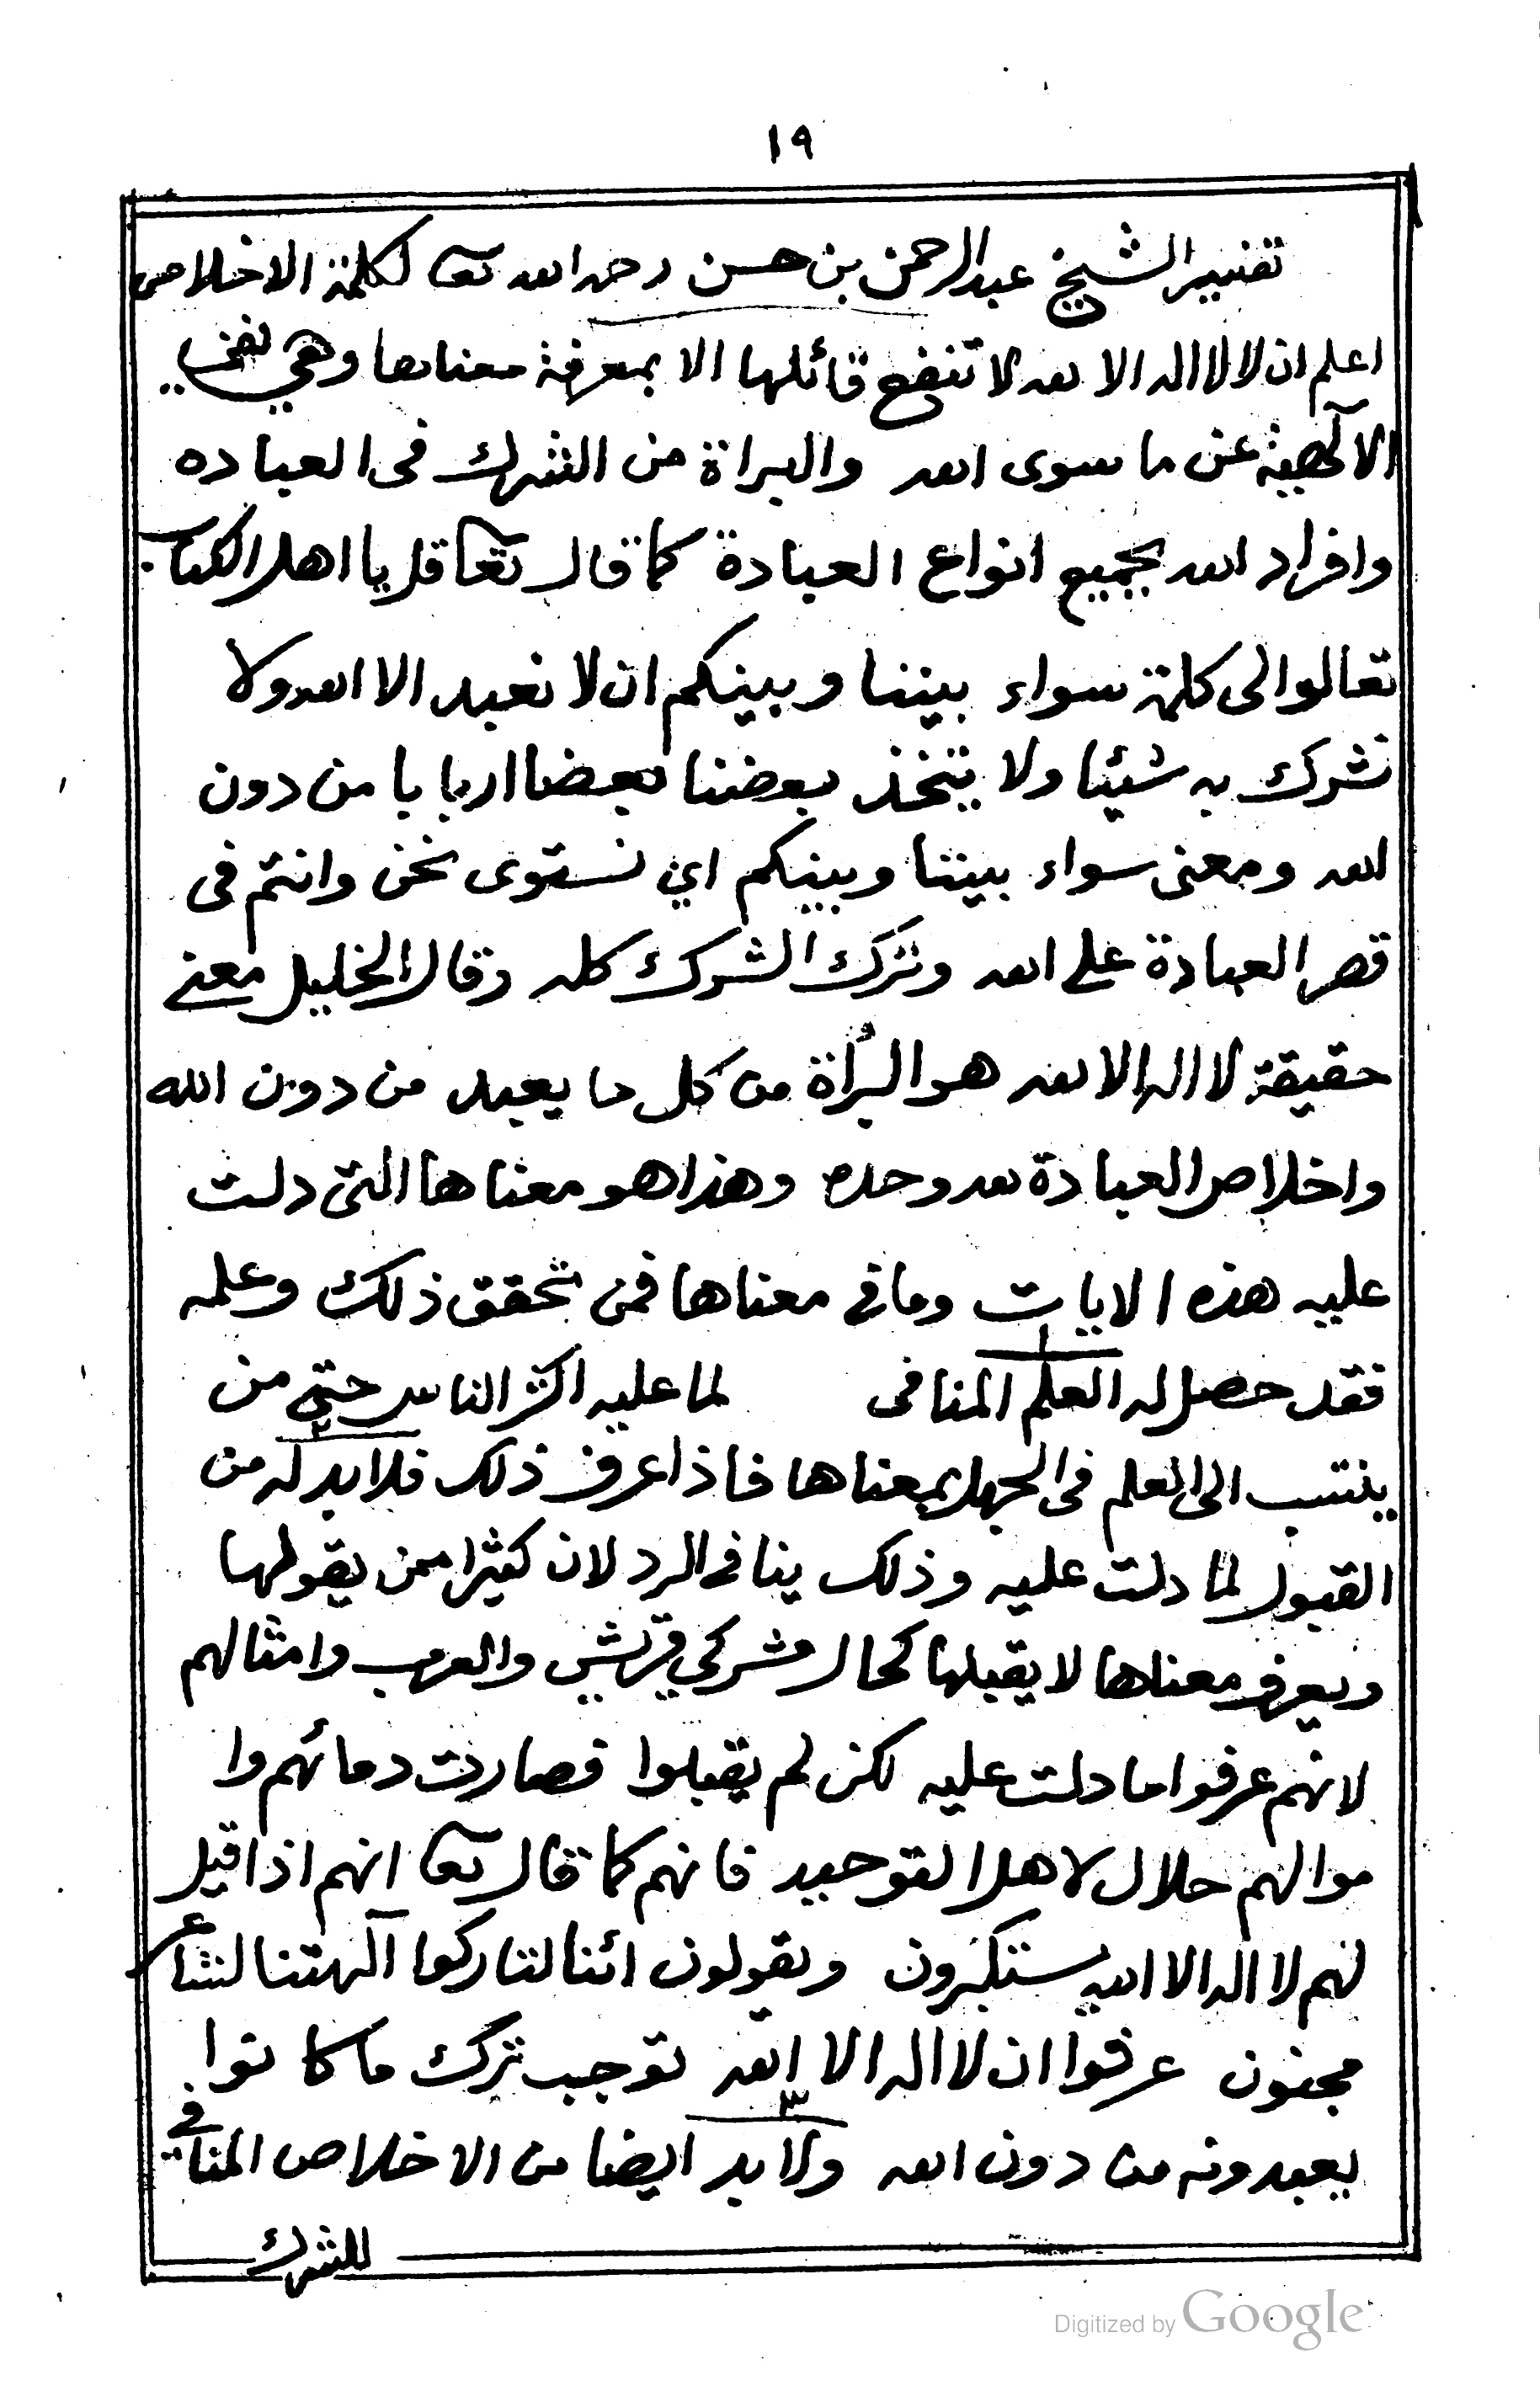 ١٩
تفسير الشيخ عبد الرحمن بن حسن رحمه الله تعا لكلمة الاخلاص
اعلم ان لا لا اله الا الله لا تنفع قائلها الا بمعرفة معناها وهي نفي
الالهية عن ما سوى الله والبراة من الشرك فى العباده
وافراد الله بجميع انواع العبادة كما قال تعا قل يا اهل الكتاب
تعالوا الى كلمة سواء بيننا وبينكم ان لا نعبد الا الله ولا
نشرك به شيئا ولا يتخذ بعضنا بعضا اربابا من دون
الله ومعنى سواء بيننا وبينكم اي نستوى نحن وانتم فى
قصر العبادة على الله وترك الشرك كله وقال الخليل معنے
حقيقة لا اله الا الله هو البرأة من كل ما يعبد من دون الله
واخلاص العبادة لله وحده وهذا هو معناها التى دلت
عليه هذه الايات وما في معناها فمن تحقق ذلك وعلمه
فقد حصل له العلم المنافى لما عليه اكثر الناس حتى من
ينتسب الى العلم فى الجهل بمعناها فاذا عرف ذلك فلا بد له من
القبول لما دلت عليه وذلك ينافي الرد لان كثيرا ممن يقولها
ويعرف معناها لا يقبلها كحال مشركي قريش والعرب وامثالهم
لانهم عرفوا ما دلت عليه لكن لم يقبلوا فصارت دمائهم وا
موالهم حلال لاهل التوحيد فانهم كما قال تعا انهم اذا قيل
لهم لا اله الا الله يستكبرون ويقولون ائنا لتاركوا آلهتنا لشاعر
مجنون عرفوا ان لا اله الا الله توجب ترك ما كانوا
٣
يعبدونه من دون الله ولا بد ايضا من الاخلاص المنافي
للشرك
Digitized by Google